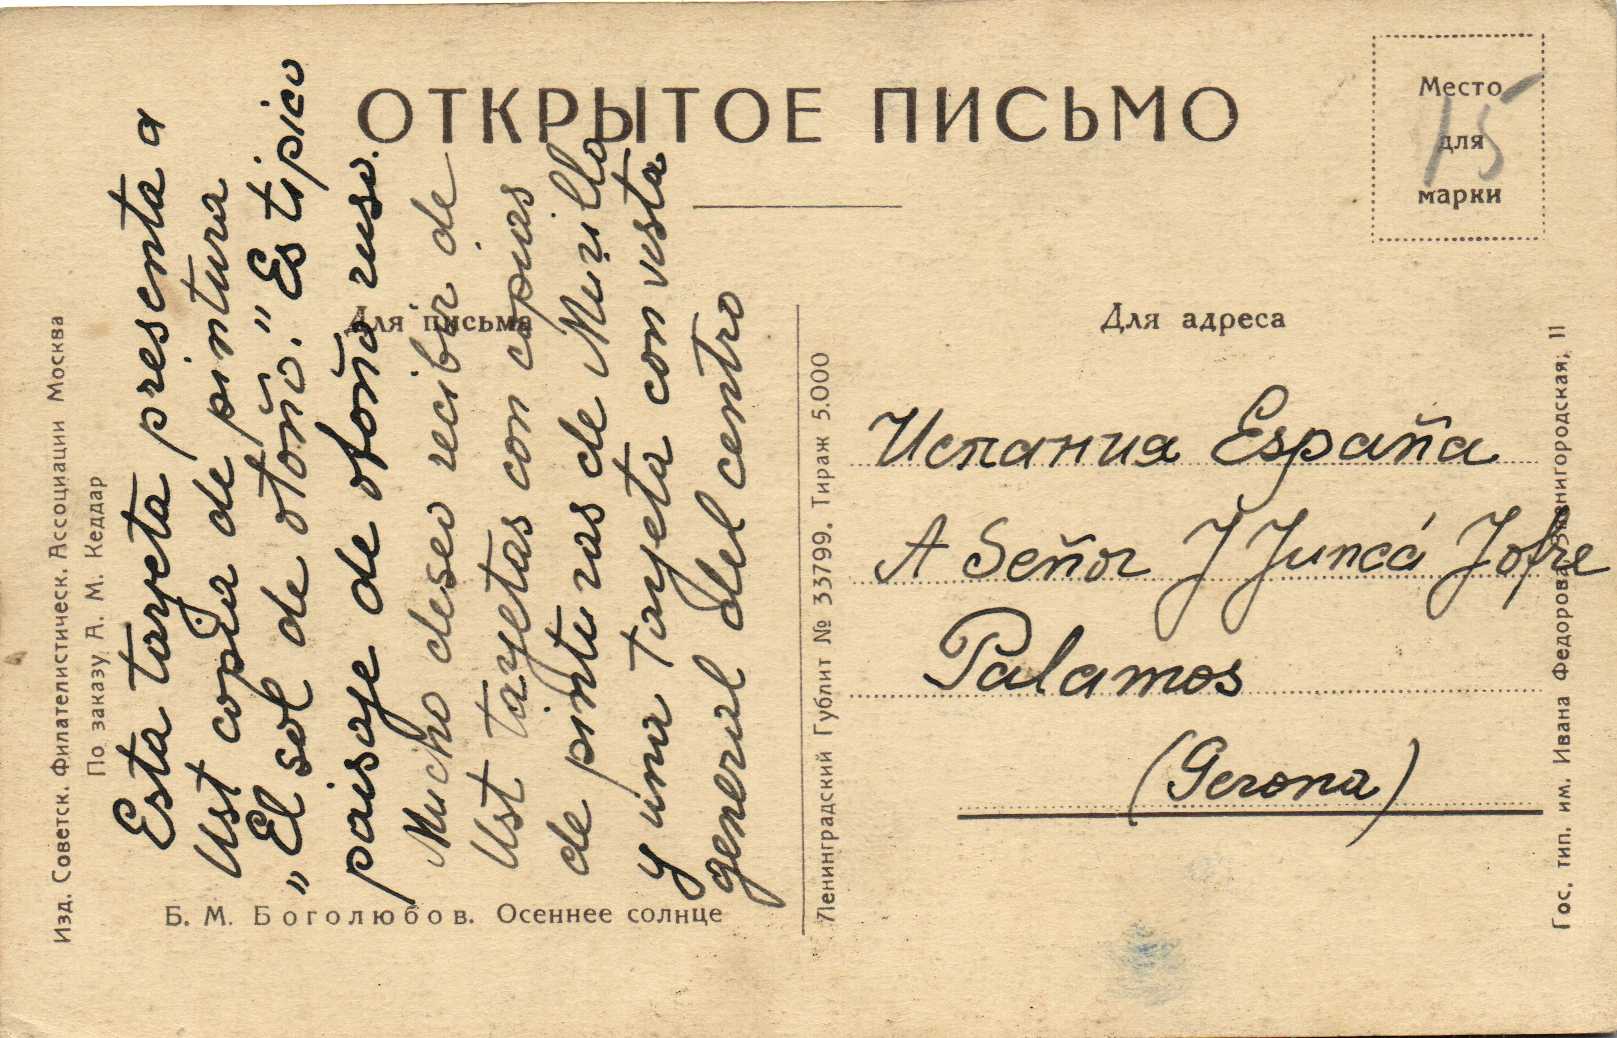 ОТКРЫТОЕ ПИСЬМО
Место
для
марки
15
Для письма
Для адреса
Изд. Советск. Филателистическ. Ассоциации Москва
По заказу А. М. Кеддар
Esta tarjeta presenta a
Ust copia de pintura
„El sol de otoño." Es tipico
paisaje de otoño ruso.
Mucho deseo recibir de
Ust tarjetas con copias
de pinturas de Murillo
y una tarjeta con vista
general del centro
Б. М. Боголюбов. Осеннее солнце
Ленинградский Гублит № 33799. Тираж 5.000
Испания España
A Señor J Juncá Jofre
Palamos
(Gerona)
Гос. тип. им. Ивана Федорова, Звенигородская, 11